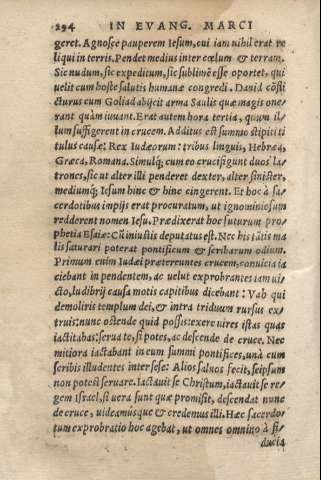 294 IN EVANG. MARCI
geret. Agnosce pauperem Iesum, cui iam nihil erat re/
liqui in terris. Pendet medius inter cœlum & terram.
Sic nudum, sic expeditum, sic sublimē esse oportet, qui
uelit cum hoste salutis humanæ congredi. Dauid cōfli
cturus cum Goliad abijcit arma Saulis quæ magis one/
rant quàm iuuant. Erat autem hora tertia, quum il/
lum suffigerent in crucem. Additus est summo stipiti ti
tulus causæ: Rex Iudæorum: tribus linguis, Hebræa,
Græca, Romana. Simulq́; cum eo crucifigunt duos la/
trones, sic ut alter illi penderet dexter, alter sinister,
mediumq́; Iesum hinc & hinc cingerent. Et hoc à sa/
cerdotibus impijs erat procuratum, ut ignominiosum
redderent nomen Iesu. Prædixerat hoc futurum pro/
phetia Esaiæ: Cū iniustis deputatus est. Nec his tātis ma
lis saturari poterat pontificum & scribarum odium.
Primum enim Iudæi prætereuntes crucem, conuicia ia
ciebant in pendentem, ac uelut exprobrantes iam ui/
cto, ludibrij causa motis capitibus dicebant: Vah qui
demoliris templum dei, & intra triduum rursus ex/
truis: nunc ostende quid possis: exere uires istas quas
iactitabas: serua te, si potes, ac descende de cruce. Nec
mitiora iactabant in eum summi pontifices, unà cum
scribis illudentes inter sese: Alios saluos fecit, seipsum
non potest seruare. Iactauit se Christum, iactauit se re/
gem Israel, si uera sunt quæ promisit, descendat nunc
de cruce, uideamusque & credemus illi. Hæc sacerdo/
tum exprobratio hoc agebat, ut omnes omnino à fi/
ducia